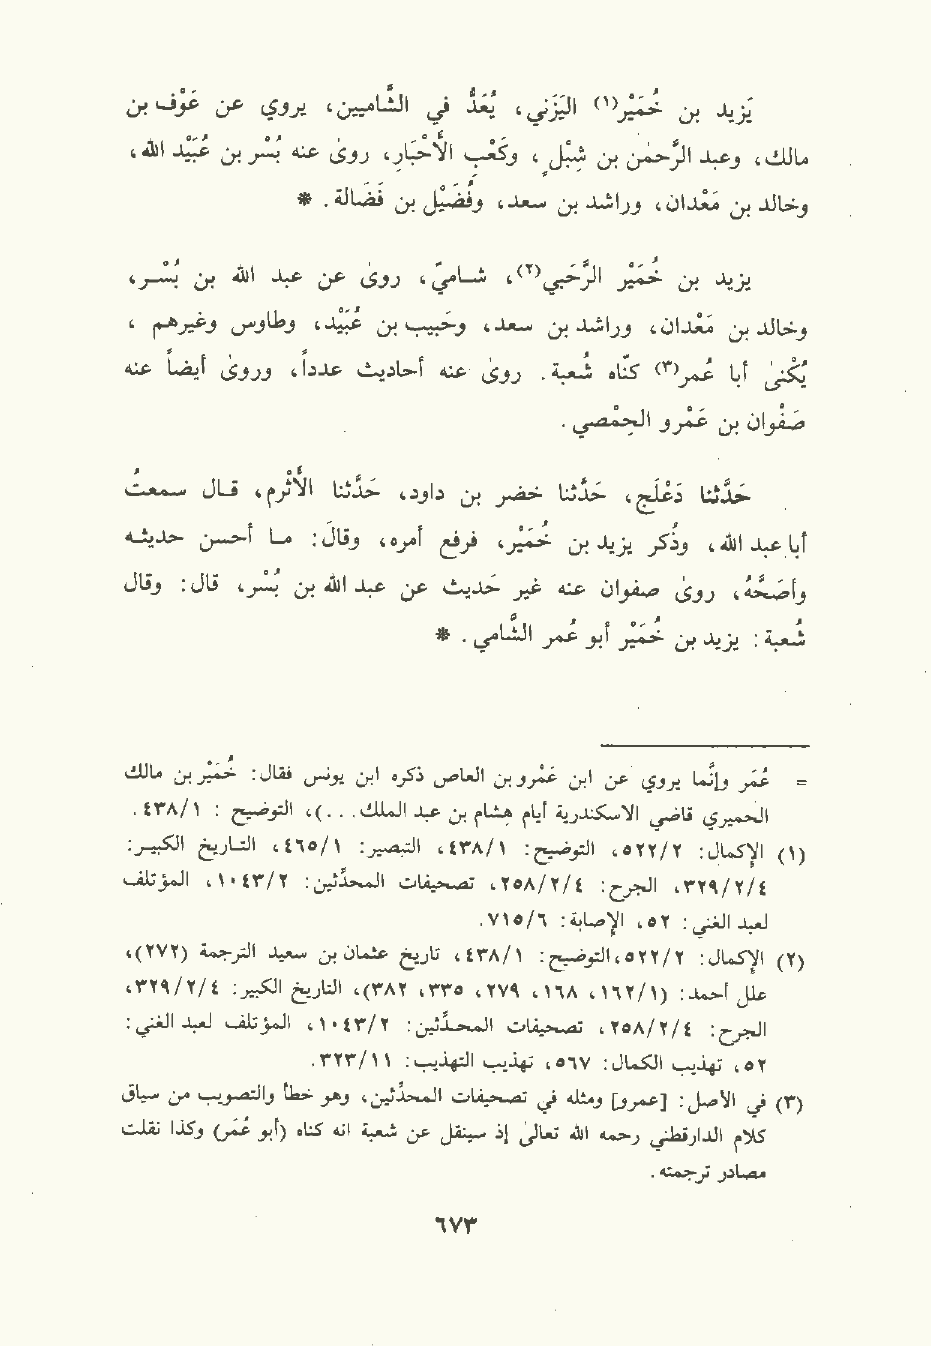 يَزيد بن خُمَيْر(١) اليَزَني، يُعَدُّ في الشَّاميين، يروي عن عَوْف بن
مالك، وعبد الرَّحمٰن بن شِبْل، وكَعْب الأَحْبَار، روىٰ عنه بُسْر بن عُبَيْد الله،
وخالد بن مَعْدان، وراشد بن سعد، وفُضَيْل بن فَضَالة. *
يزيد بن خُمَيْر الرَّحَبي(٢)، شـامـيّ، روىٰ عن عبد الله بن بُسْـر،
وخالد بن مَعْدان، وراشد بن سعد، وحَبيب بن عُبَيْد، وطاوس وغيرهم،
يُكْنىٰ أبا عُمر(٣) كنّاه شُعبة. روىٰ عنه أحاديث عدداً، وروىٰ أيضاً عنه
صَفْوان بن عَمْرو الحِمْصي.
حَدَّثنا دَعْلَج، حَدَّثنا خضر بن داود، حَدَّثنا الأَثْرم، قـال سمعتُ
أبا عبد الله، وذُكر يزيد بن خُمَيْر، فرفع أمره، وقالَ: مـا أحسن حديثـه
وأصَحَّهُ، روىٰ صفوان عنه غير حَديث عن عبد الله بن بُسْر، قالَ: وقال
شُعبة: يزيد بن خُمَيْر أبو عُمر الشَّامي. *
= عُمَر وإنَّما يروي عن ابن عَمْرو بن العاص ذكره ابن يونس فقال: خُمَيْر بن مالك
الحميري قاضي الاسكندرية أيام هشام بن عبد الملك...)، التوضيح: ٤٣٨/١.
(١) الإكمال: ٥٢٢/٢، التوضيح: ٤٣٨/١، التبصير: ٤٦٥/١، التـاريخ الكبيـر:
٣٢٩/٢/٤، الجرح: ٢٥٨/٢/٤، تصحيفات المحدِّثين: ١٠٤٣/٢، المؤتلف
لعبد الغني: ٥٢، الإصابة: ٧١٥/٦.
(٢) الإكمال: ٥٢٢/٢، التوضيح: ٤٣٨/١، تاريخ عثمان بن سعيد الترجمة (٢٧٢)،
علل أحمد: (١٦٢/١، ١٦٨، ٢٧٩، ٣٣٥، ٣٨٢)، التاريخ الكبير: ٣٢٩/٢/٤،
الجرح: ٢٥٨/٢/٤، تصحيفات المحـدِّثين: ١٠٤٣/٢، المؤتلف لعبد الغني:
٥٢، تهذيب الكمال: ٥٦٧، تهذيب التهذيب: ٣٢٣/١١.
(٣) في الأصل: [عمرو] ومثله في تصحيفات المحدِّثين، وهو خطأ والتصويب من سياق
كلام الدارقطني رحمه الله تعالىٰ إذ سينقل عن شعبة انه كناه (أبو عُمَر) وكذا نقلت
مصادر ترجمته.
٦٧٣